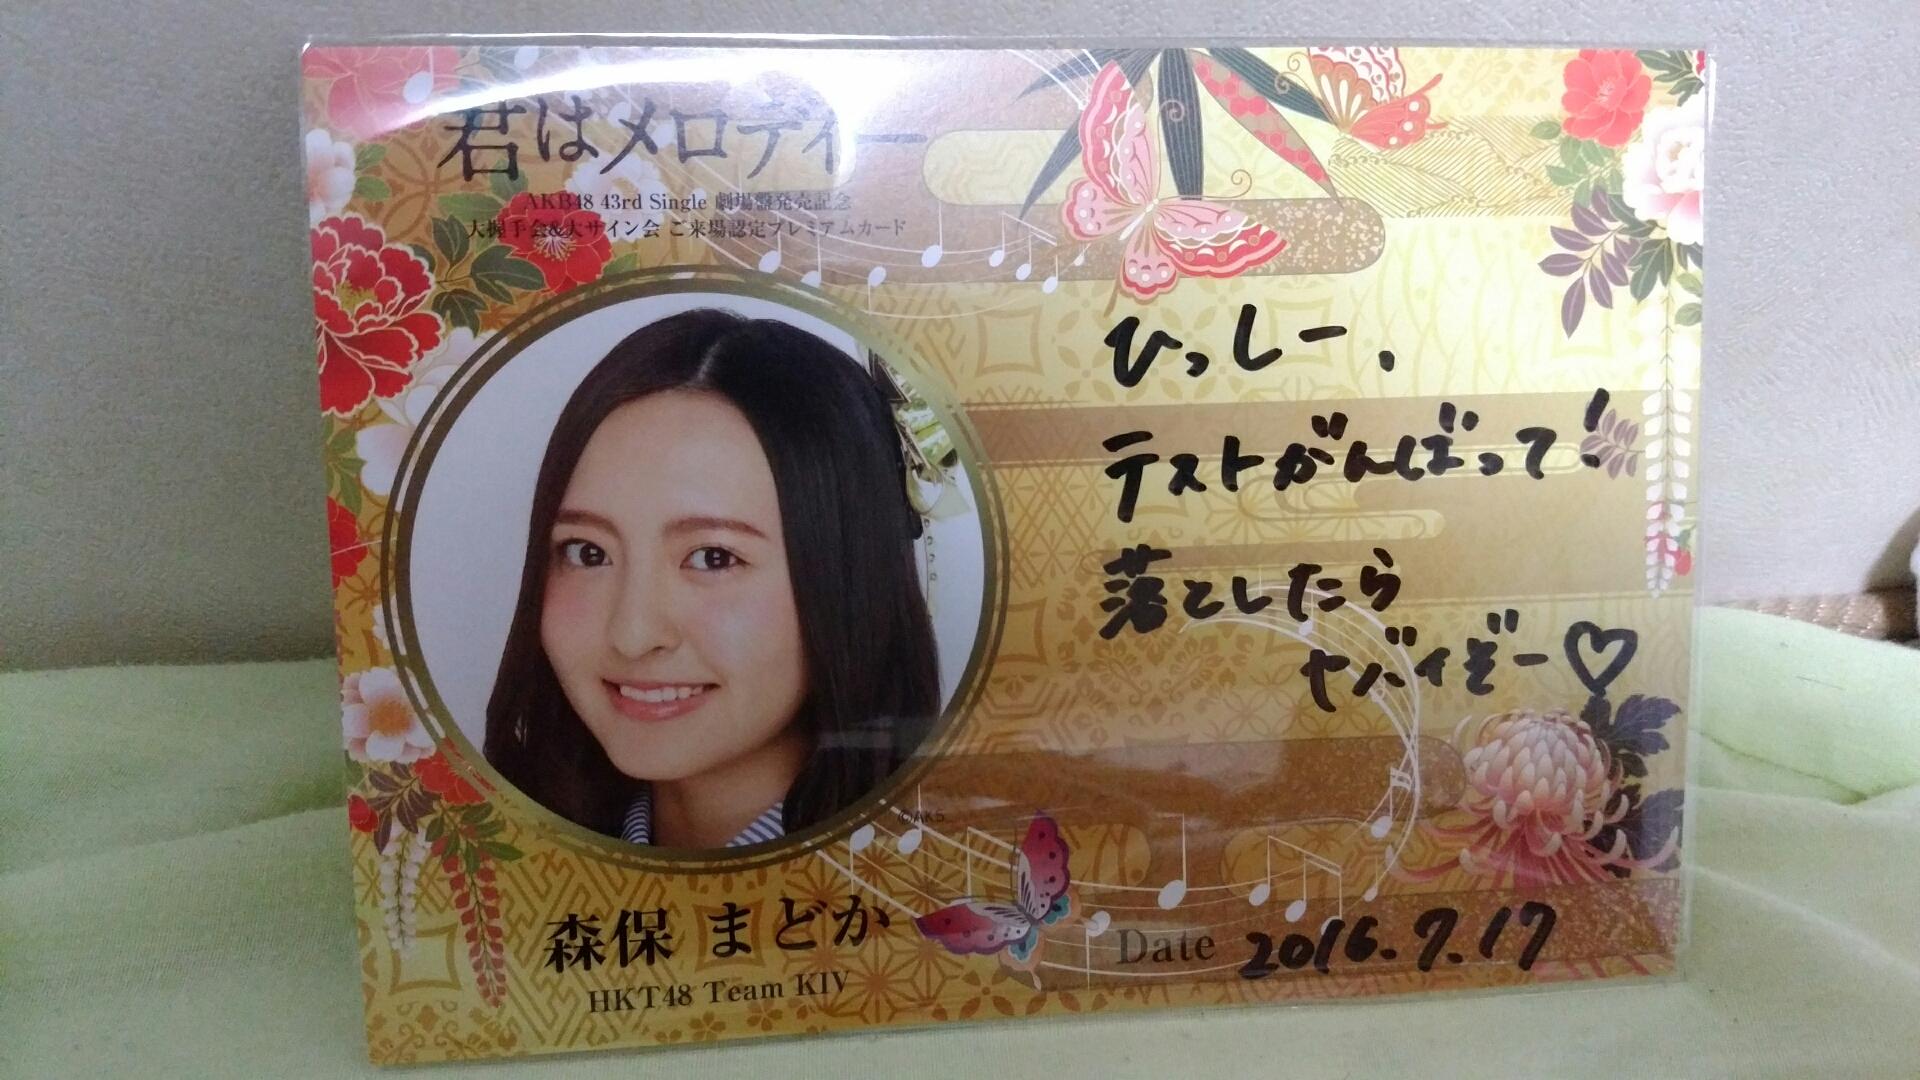 君はメロディー
AKB48 43rd Single 劇場盤発売記念
大握手会&大サイン会 ご来場認定プレミアムカード
ひっしー、
テストがんばって!
落としたら
ヤバイぞー♡
©AKS
森保 まどか
HKT48 Team KIV
Date 2016.7.17